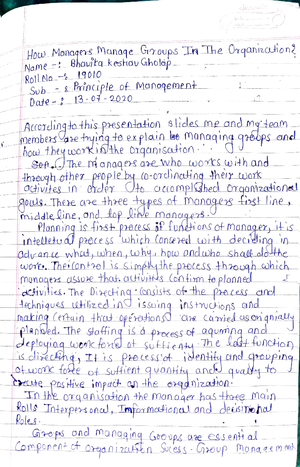 How Managers Manage Groups In The Organization?
Name -: Bhavita Keshav Gholap
Roll No -: 19010
Sub - : Principle of Management
Date - : 13-07-2020
According to this presentation slides me and my team
members are trying to explain managing groups and
how they work in the organisation.
The managers are who works with and
through other people by co-ordinating their work
activites in order to accomplished Organizational
goals. There are three types of managers first line,
middle line, and top line managers.
Planning is first process of functions of manager, it is
intelletual process which concered with deciding in
advance what, when, why, how and who shall do the
work. The control is simply the process through which
managers assure that activities confirm to planned
activities. The Directing consists of the process and
techniques utilized in issuing instructions and
making certain that operations are carried as originally
planned. The staffing is a process of aquring and
deploying work force of suffienty. The last function
is directing, It is process of identify and grouping
of work force of suffient quantity and quality to
create positive impact on the organization.
In the organisation the manager has three main
Rolls Interpersonal, Imformational and deisitional
Roles.
Groups and managing Groups are essential
Component of organization Sucess. Group Management